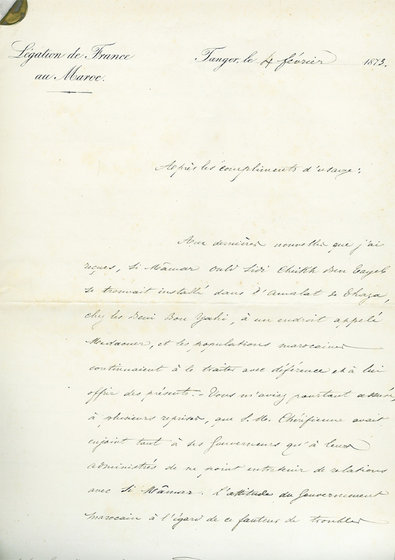 Légation de France
au Maroc.
Tanger, le 4 février 1873.
Après les compliments d'usage :
Aux dernières nouvelles que j'ai
reçues, Si Mâmar Ould Sidi Cheikh ben Tayeb
se trouvait installé dans l'amalat de Thaza,
chez les Beni Bou Yahi, à un endroit appelé
et les populations marocaines
continuaient à le traiter avec déférence et à lui
offrir des présents. - Vous m'aviez pourtant assuré
à plusieurs reprises, que S. M. Chérifienne avait
enjoint tant à ses Gouverneurs qu'à leurs
administrés de ne point entretenir de relations
avec Si Mâmar. L'attitude du Gouvernement
marocain à l'égard de ce fauteur de troubles